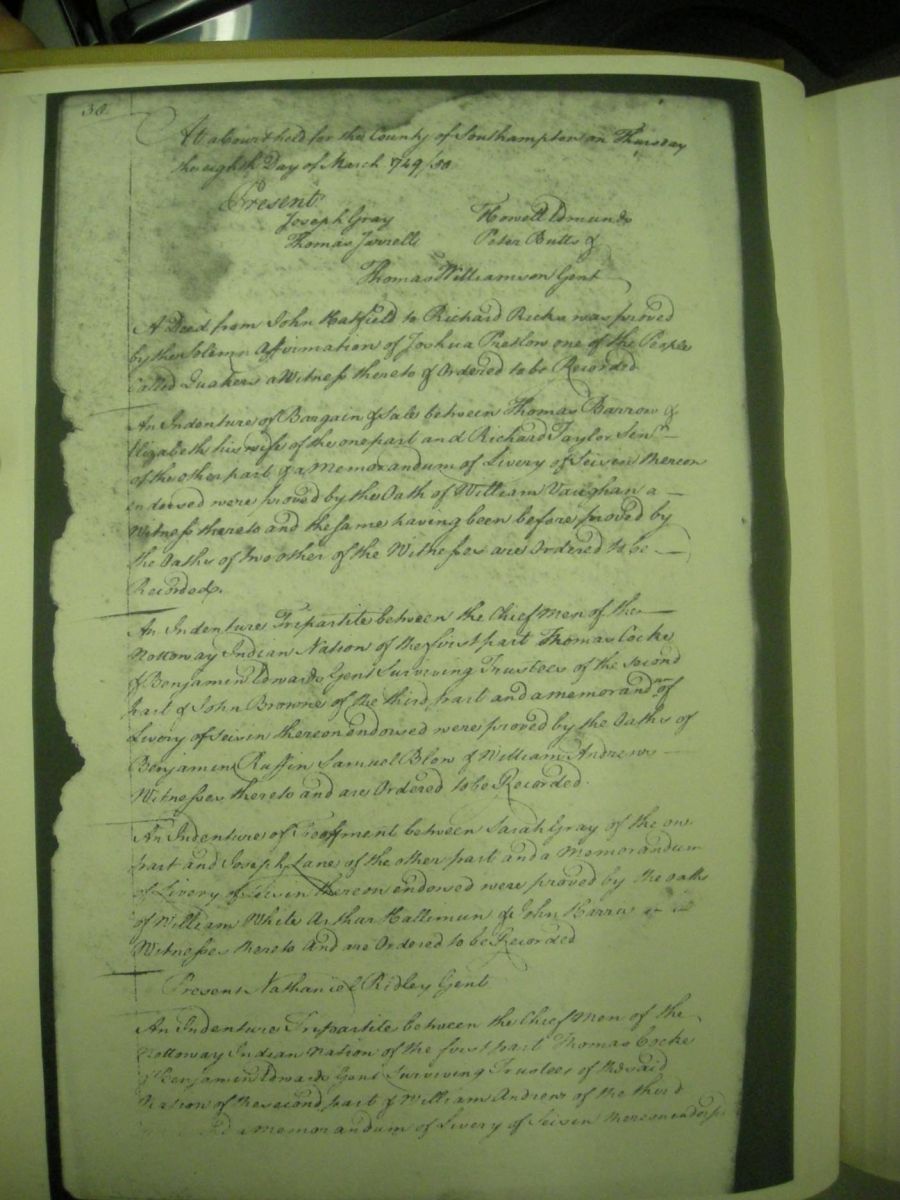 38
At a Court held for the County of Southampton on Thursday
the eighth Day of March 1749/50
Present
Joseph Gray Howell Edmunds
Thomas Jarrell Peter Butts &
Thomas Williamson Gent
A Deed from John Hatfield to Richard Ricks was proved
by the Solemn Affirmation of Joshua Pretlow one of the People
called Quakers a Witness thereto & Ordered to be Recorded
An Indenture of Bargain & Sale between Thomas Barrow &
Elizabeth his wife of the one part and Richard Taylor Senr
of the other part & a Memorandum of Livery of Seisen thereon
endorsed were proved by the Oath of William Vaughan a
Witness thereto and the same having been before proved by
the Oaths of two other of the Witnesses are Ordered to be
Recorded.
An Indenture Tripartite between the Chief Men of the
Nottoway Indian Nation of the first part Thomas Cocke
& Benjamin Edwards Gent Surviving Trustees of the second
part & John Browne of the third part and a memorandm of
Livery of Seisin thereon endorsed were proved by the Oaths of
Benjamin Ruffin Samuel Blow & William Andrews
Witnesses thereto and are Ordered to be Recorded.
An Indenture of Feoffment between Sarah Gray of the one
part and Joseph Lane of the other part and a Memorandum
of Livery of Seisin thereon endorsed were proved by the oaths
of William White Arthur & John
Witnesses thereto And are Ordered to be Recorded
Present Nathaniel Ridley Gent
An Indenture Tripartite between the Chief Men of the
Nottoway Indian Nation of the first part Thomas Cocke
& Benjamin Edwards Gent Surviving Trustees of the said
Nation of the second part & William Andrews of the third
a Memorandum of Livery of Seisin thereon